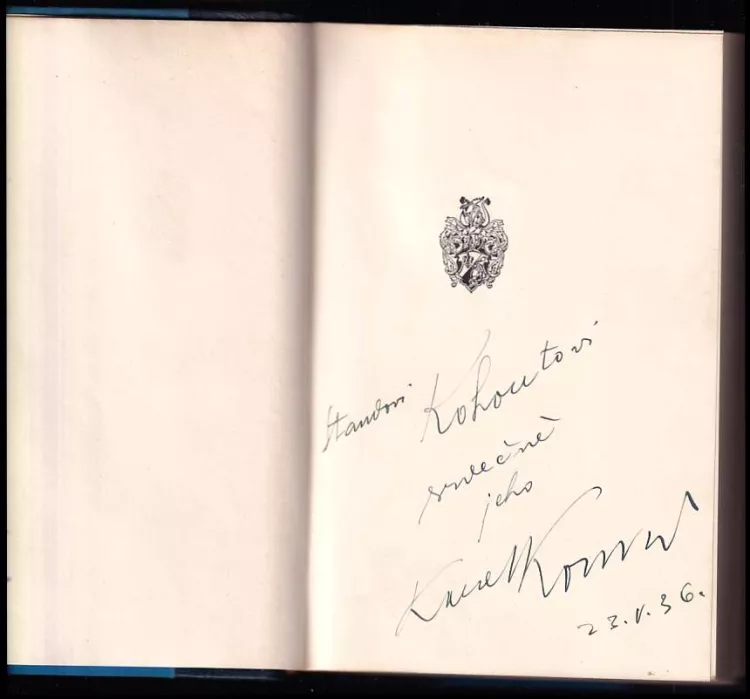 Standovi Kohoutovi
srdečně
jeho
Karel Konrád
23.V.36.